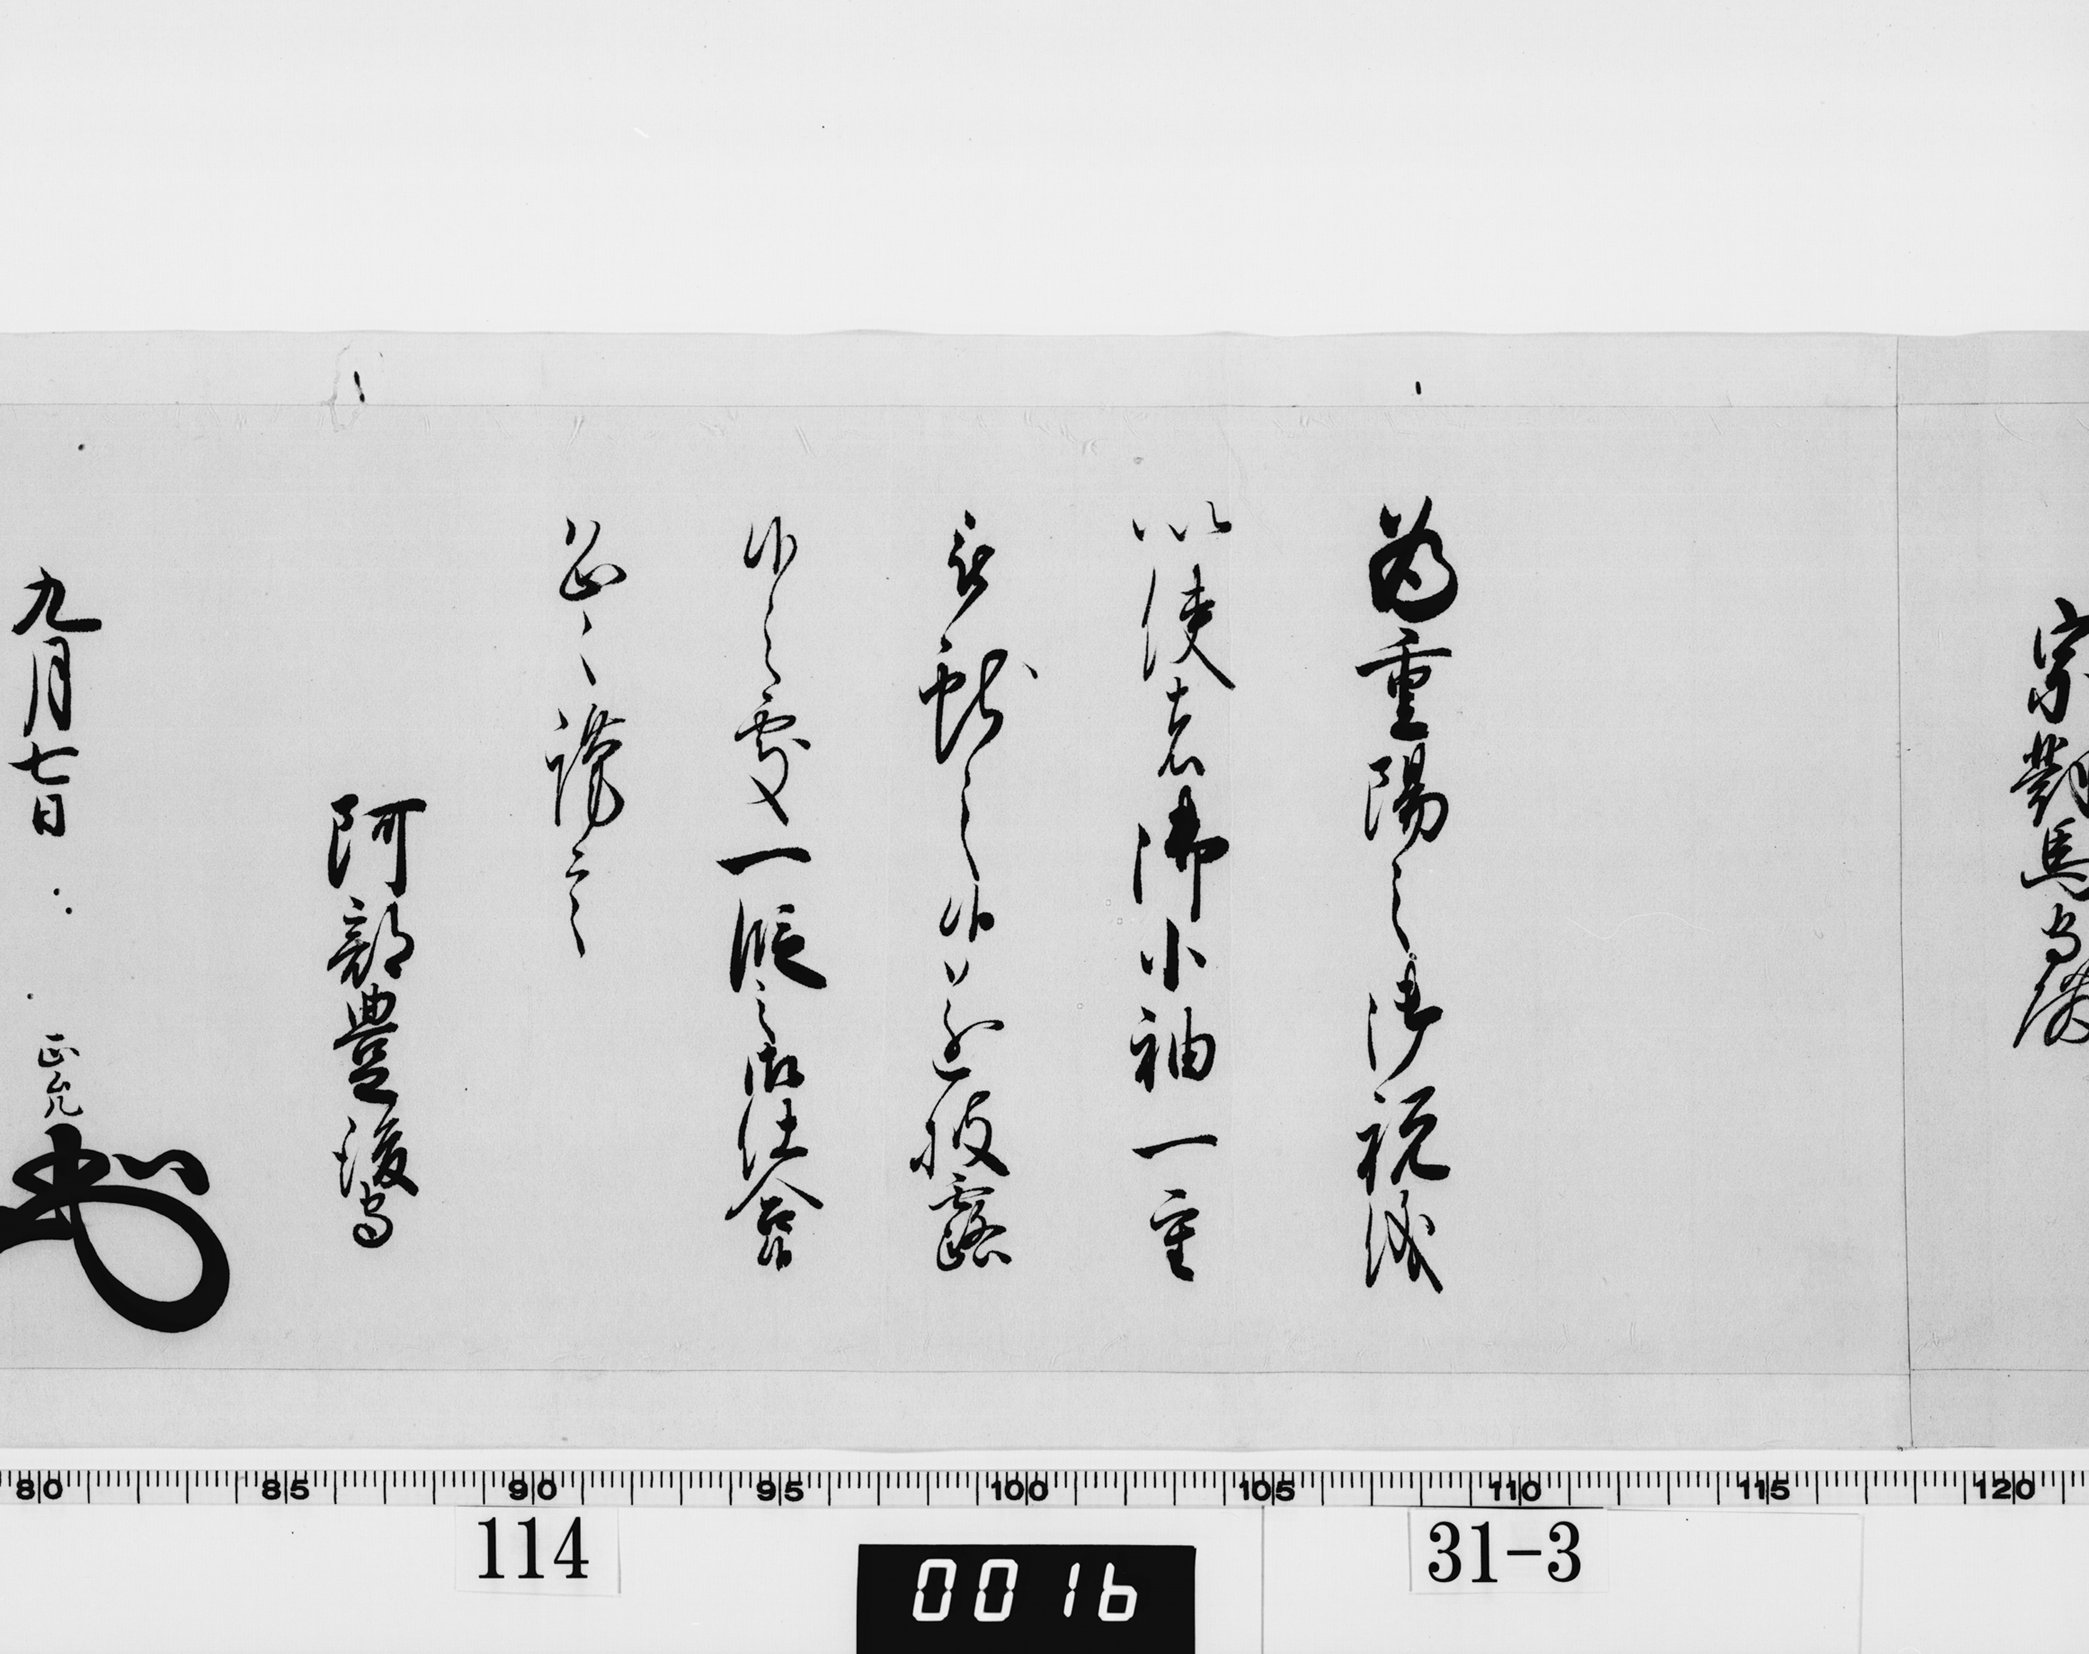 宗對馬守殿
為重陽之御祝儀
以使者御小袖一重
被獻之候遂披露
候之處一段之御仕合候
恐々謹言
阿部豊後守
九月七日 正允
80 85 90 95 100 105 110 115 120
114
0016
31-3